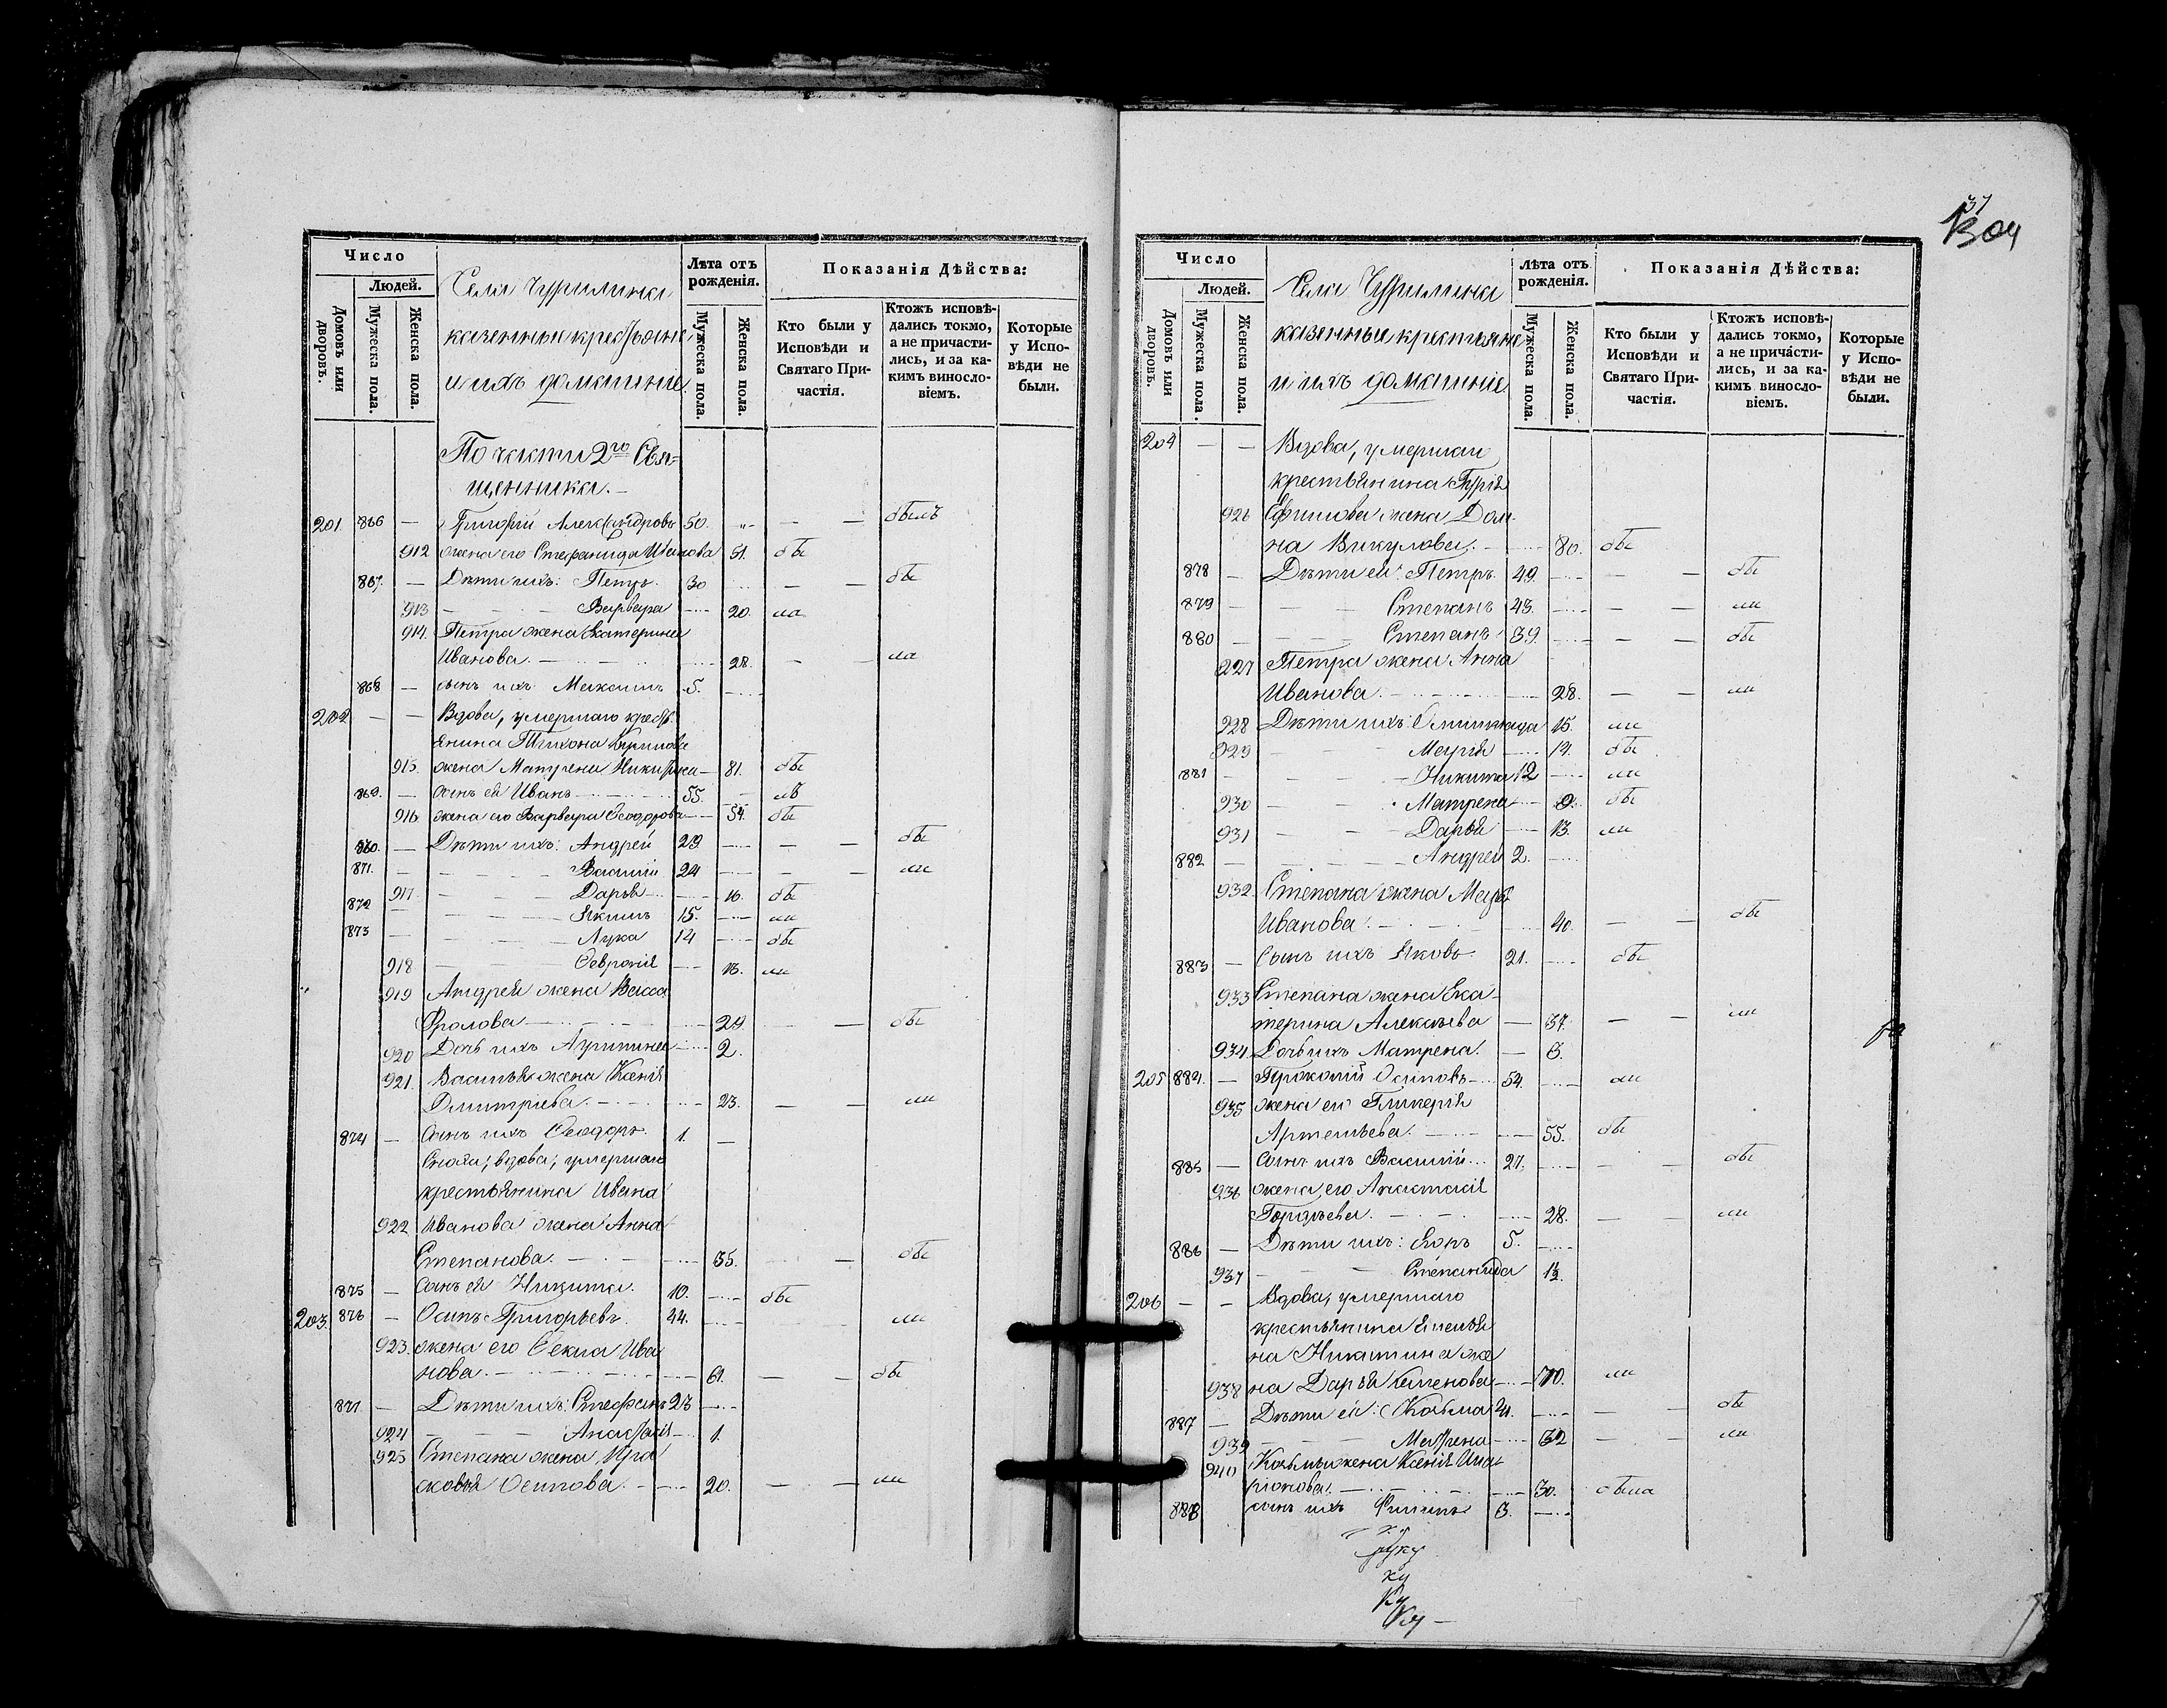 Число
Людей.
Домовъ или дворовъ.
Мужеска пола.
Женска пола.
Села Чурилина
казенные крестьяне
и ихъ домашніе
Лѣта отъ рожденія.
Мужеска пола.
Женска пола.
Показанія Дѣйства:
Кто были у Исповѣди и Святаго Причастія.
Ктожъ исповѣдались токмо, а не причастились, и за какимъ винословіемъ.
Которые у Исповѣди не были.
По части 2го Свя-
щенника.
201. 866 — Григорій Александровъ 50. — — былъ
912 жена его Стефанида Иванова 51. бы
867. — Дѣти ихъ: Петръ 30 — — бы
913 — — — Варвара 20. ла
914. Петра жена Екатерина
Иванова. 28. — — ла
868 — сынъ ихъ Максимъ 5.
202 — — Вдова, умершаго кресть-
янина Тихона
915. жена Матрена Никитина 81. бы
869. — сынъ ея Иванъ 55. лъ
916. жена его Варвара Ѳеодорова 54. бы
870. — Дѣти ихъ: Андрей 29 — — бы
871. — — — Василій 24 — — ли
917 — — — Дарья 16. бы
872 — — — Якимъ 15. ли
873 — — — Лука 14 бы
918 — — — Ѳевронія 13. ли
919 Андрея жена Васса
Фролова 29. — — бы
920 Дочь ихъ Агрипина 2.
921. Василья жена Ксенія
Дмитріева. 23. — — ли
874 — Сынъ ихъ Ѳеодоръ. 1. —
Сноха, вдова, умершаго
крестьянина Ивана
922 Иванова жена Анна
Степанова. 35. — — бы
875 — Сынъ ея Никита. 10. бы
203. 876 — Осипъ Григорьевъ. 44. ли
923. жена его Ѳекла Ива
нова. 61. — — бы
877 — Дѣти ихъ: Стефанъ 23
924 — — — Анастасія 1.
925 Степана жена Пра
сковья Осипова. 20. — — ли
1304
Число
Людей.
Домовъ или дворовъ.
Мужеска пола.
Женска пола.
Села Чурилина
казенные крестьяне
и ихъ домашніе
Лѣта отъ рожденія.
Мужеска пола.
Женска пола.
Показанія Дѣйства:
Кто были у Исповѣди и Святаго Причастія.
Ктожъ исповѣдались токмо, а не причастились, и за какимъ винословіемъ.
Которые у Исповѣди не были.
204 — — Вдова, умершаго
крестьянина Гурія
926 Ефимова жена Дом-
на Викулова. 80. бы
878 — Дѣти ея: Петръ 49. — — бы
879 — — — Степанъ 43. — — ли
880 — — — Степанъ 39. — — бы
927 Петра жена Анна
Иванова. 28. — — ли
928 Дѣти ихъ: 15. ли
929 — — — Марія 14. бы
881 — — — Никита 12 ли
930 — — — Матрена 9. бы
931 — — — Дарья 13. ли
882 — — — Андрей 2.
932. Степана жена
Иванова. 40. — — бы
883 — Сынъ ихъ Яковъ 21. бы
933 Степана жена Ека-
терина Алексѣева — 37. — — ли
934. Дочь ихъ Матрена. — 3.
205 884. — Прокопій Осиповъ 54. ли
935 жена его Гликерія
Артемьева. 55. бы
885 — Сынъ ихъ Василій 27. — — бы
936 жена его Анастасія
28. — — ли
886 — Дѣти ихъ: 5.
937 — — — Степанида 13.
206 — — Вдова, умершаго
крестьянина Емелья
на Никитина же
938 на Дарья Семенова 70. ли
887 — Дѣти ея: Козьма 31. — — бы
939 — — — Матрена 32 — — ли
940 Козьмы жена Ксенія Ила-
ріонова. 30. была
888 сынъ ихъ Филипъ 3.
ку
Ку
Ку —